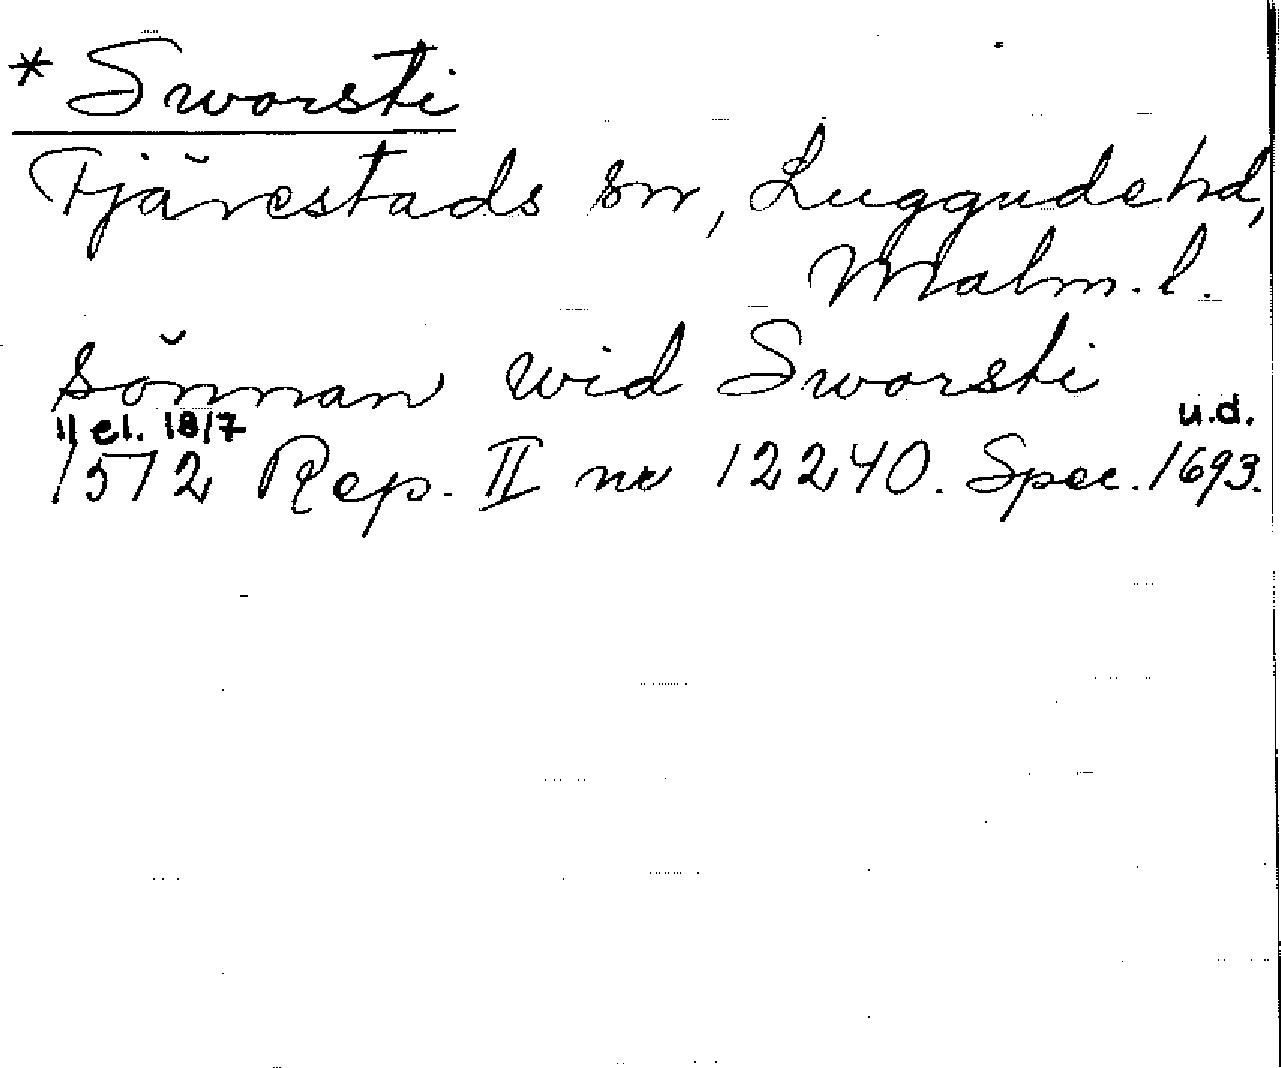 * Sworsti
Fjärestads sn, Luggude hd,
Malm. l.
sönnan wid Sworsti
11 el. 18/7 u.d.
1572 Rep. II nr 12240. Spec. 1693.